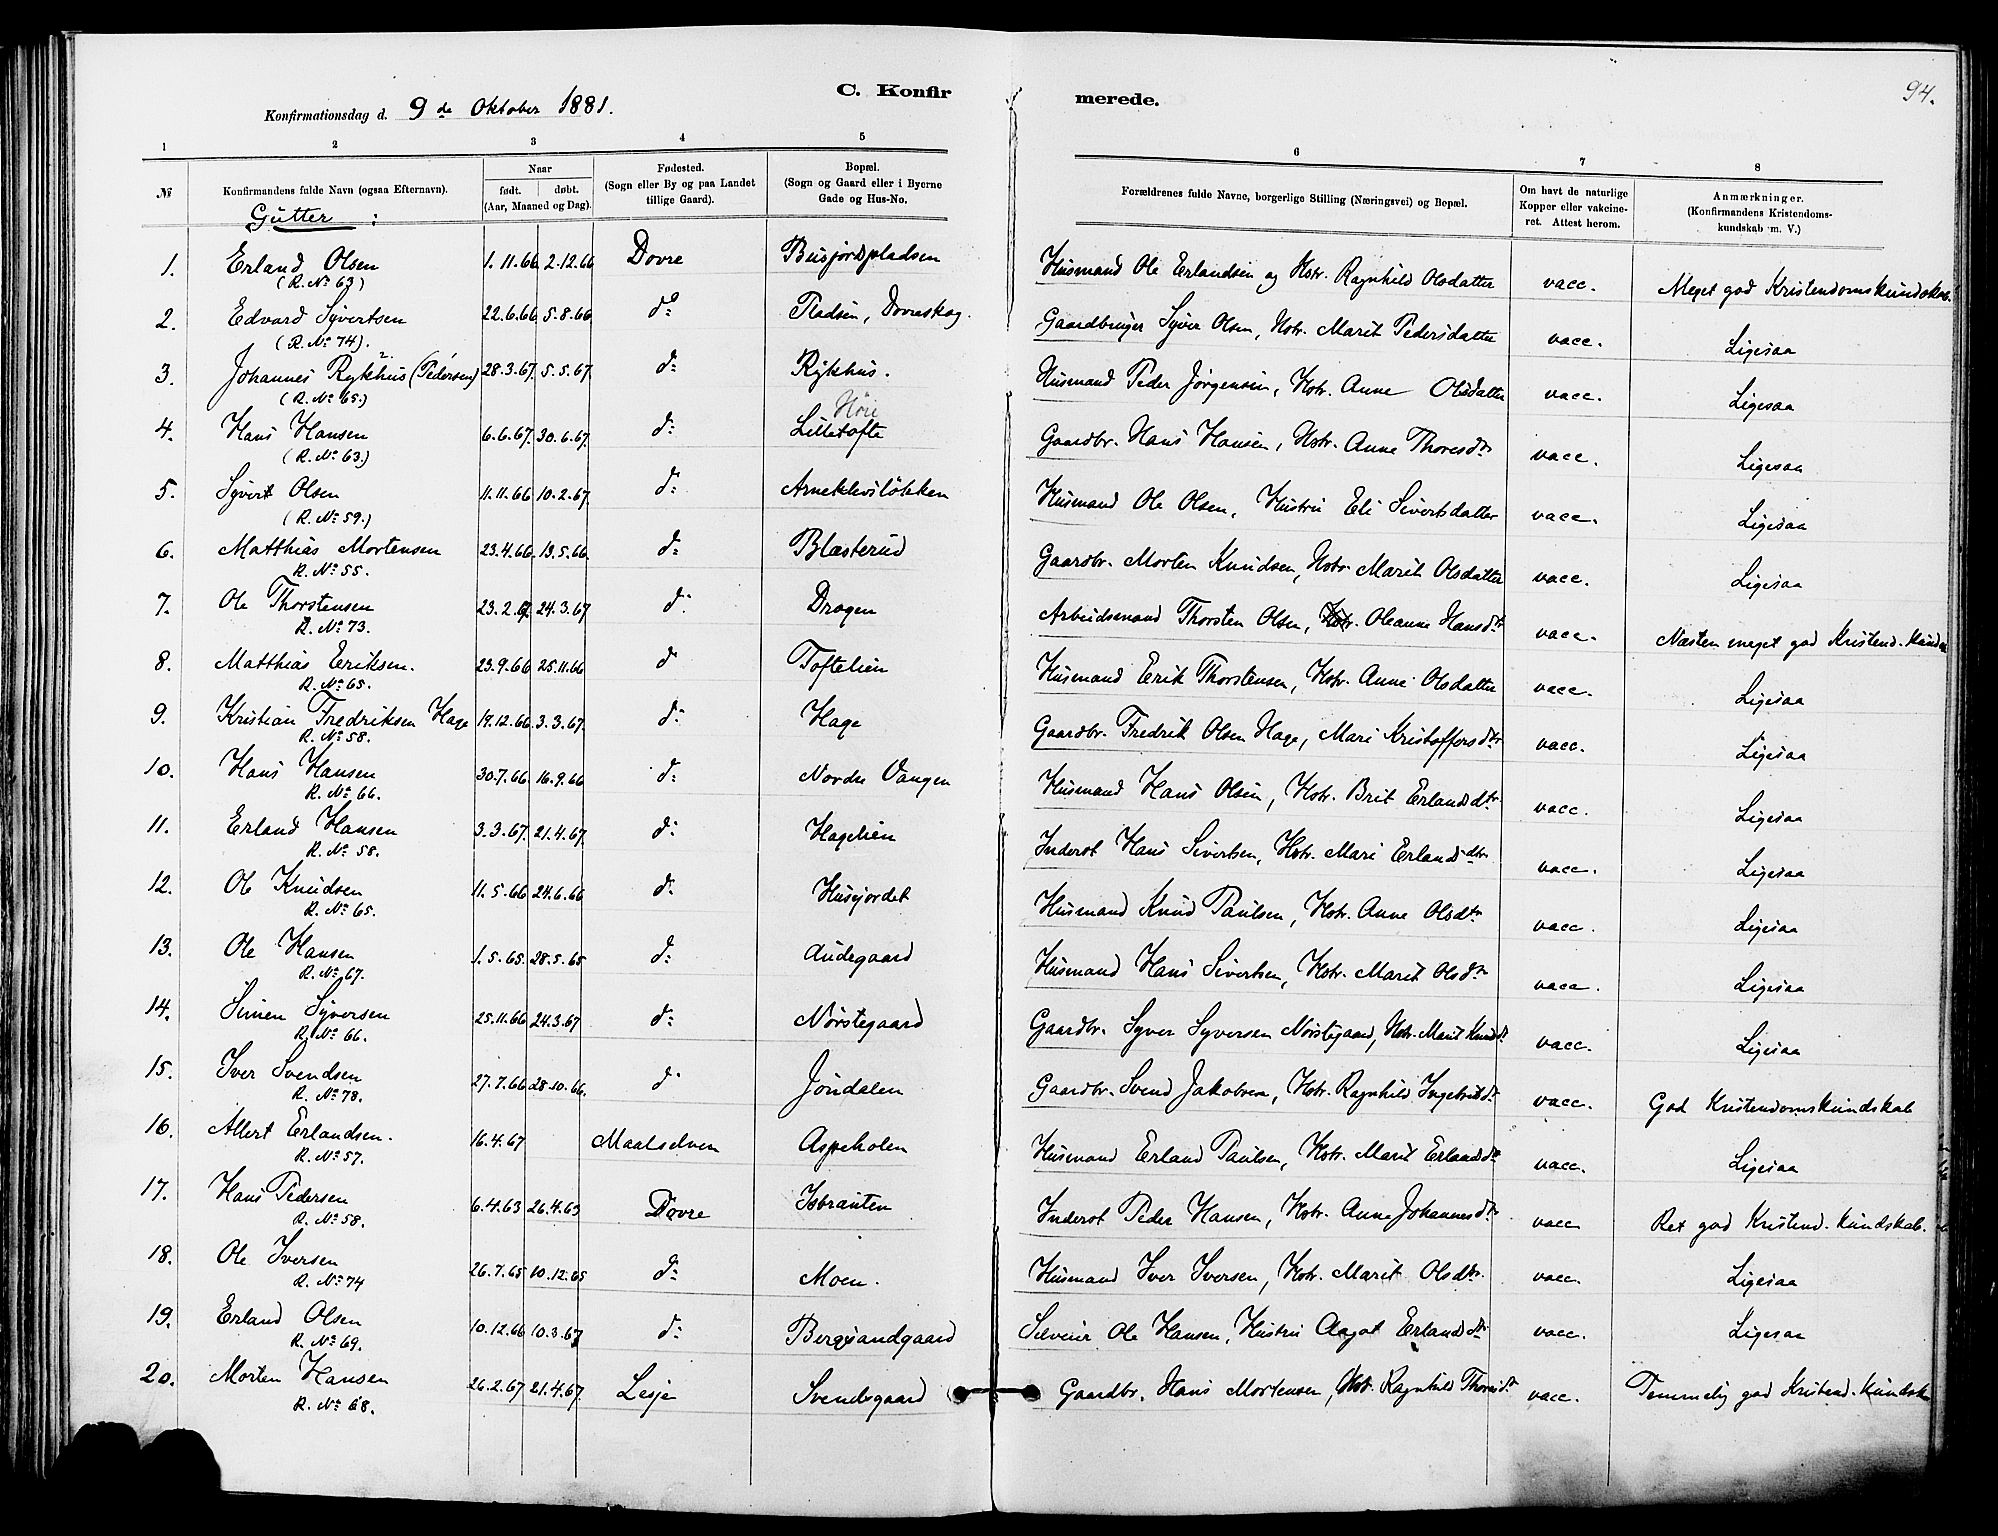 94.
C. Konfirmerede.
Konfirmationsdag d. 9de Oktober 1881.
1 2 3 4 5 6 7 8
№ Konfirmandens fulde Navn (ogsaa Efternavn). Naar født. døbt. (Aar, Maaned og Dag). Fødested. (Sogn eller By og paa Landet tillige Gaard). Bopæl. (Sogn og Gaard eller i Byerne Gade og Hus-No. Forældrenes fulde Navne, borgerlige Stilling (Næringsvei) og Bopæl. Om havt de naturlige Kopper eller vakcineret. Attest herom. Anmærkninger. (Konfirmandens Kristendomskundskab m. V.)
Gutter :
1. Erland Olsen 1.11.66 2.12.66 Dovre Busjordpladsen Husmand Ole Erlandsen og Hstr. Ragnhild Olsdatter vacc. Meget god Kristendomskundskab.
(R. No 63)
2. Edvard Syvertsen 22.6.66 5.8.66 do Pladsen, Dovreskog. Gaardbruger Syver Olsen, Hstr. Marit Pedersdatter vacc. Ligesaa
(R. No 74).
3. Johannes Rykhus (Pedersen) 28.3.67. 5.5.67. do Rykhus. Husmand Peder Jørgensen, Hstr. Anne Olsdatter vacc. Ligesaa
(R. No 65.)
4. Hans Hansen 6.6.67. 30.6.67. do Lilletofte Gaardbr. Hans Hansen, Hstr. Anne Thoresdtr vacc. Ligesaa
(R. No 63.)
5. Syvert Olsen 11.11.66 10.2.67. do Arneklivsløkken Husmand Ole Olsen, Hustru Eli Sivertsdatter vacc. Ligesaa
(R. No 59.)
6. Matthias Mortensen 23.4.66. 13.5.66. do Blæsterud Gaardbr. Morten Knudsen, Hstr. Marit Olsdatter vacc. Ligesaa
R. No 55.
7. Ole Thorstensen 23.2.67 24.3.67 do Dragen Arbeidsmand Thorsten Olsen, Hstr. Oleanne Hansdtr vacc. Næsten meget god Kristend. kundsk
R. No 73.
8. Matthias Eriksen. 23.9.66 25.11.66 do Toftelien Husmand Erik Thorstensen, Hstr. Anne Olsdatter vacc. Ligesaa
R. No 65.
9. Kristian Fredriksen Hage 19.12.66 3.3.67. do Hage Gaardbr. Fredrik Olsen Hage, Mari Kristoffersdtr vacc. Ligesaa
R. No 58.
10. Hans Hansen 30.7.66 16.9.66 do Nordre Vangen Husmand Hans Olsen, Hstr. Brit Erlandsdtr vacc. Ligesaa
R. No 66.
11. Erland Hansen 3.3.67. 21.4.67. do Hagelien Inderst Hans Sivertsen, Hstr. Mari Erlandsdtr vacc. Ligesaa
R. No 58.
12. Ole Knudsen 11.5.66 24.6.66 do Husjordet Husmand Knud Paulsen, Hstr. Anne Olsdtr vacc. Ligesaa
R. No 65.
13. Ole Hansen 1.5.65. 28.5.65 do Audegaard Husmand Hans Sivertsen, Hstr. Marit Olsdtr vacc. Ligesaa
R. No 67.
14. Simen Syversen 25.11.66 24.3.67 do Nørstegaard Gaardbr. Syver Syversen Nørstegaard, Hstr. Marit Knudsdtr vacc. Ligesaa
R. No 66.
15. Iver Svendsen 27.7.66 28.10.66. do Jøndalen Gaardbr. Svend Jakobsen, Hstr. Ragnhild Ingebrigtsdtr vacc. God Kristendomskundskab
R. No 78.
16. Albert Erlandsen. 16.4.67 Maalselven Aspeholen Husmand Erland Paulsen, Hstr. Marit Erlandsdtr vacc. Ligesaa
R. No 57.
17. Hans Pedersen 6.4.63 26.4.63 Dovre Isbraaten Inderst Peder Hansen, Hstr. Anne Johannesdtr vacc Ret god Kristend. kundskab.
R. No 58.
18. Ole Iversen 26.7.65 10.12.65 do Moen. Husmand Iver Iversen, Hstr. Marit Olsdtr. vacc. Ligesaa
R. No 74
19. Erland Olsen 10.12.66 10.3.67 do Bergsandgaard Selveier Ole Hansen, Hustru Aagot Erlandsdtr vacc. Ligesaa
R. No 69.
20. Morten Hansen 26.2.67 21.4.67. Lesje Svendsgaard Gaardbr. Hans Mortensen, Hstr. Ragnhild Thoresdtr vacc. Temmelig god Kristend. kundsk
R. No 68.